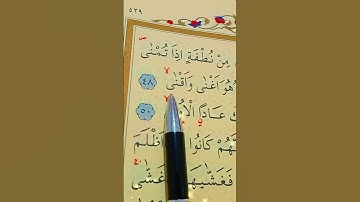 ٥٢٩
مِنْ نُطْفَةٍ اِذَا تُمْنٰى
هُوَ اَغْنٰى وَاَقْنٰى ٤٨
عَادًا الْاُ ٥٠
هُمْ كَانُوا اَظْلَمَ
فَغَشّٰيهَا غَشّٰى